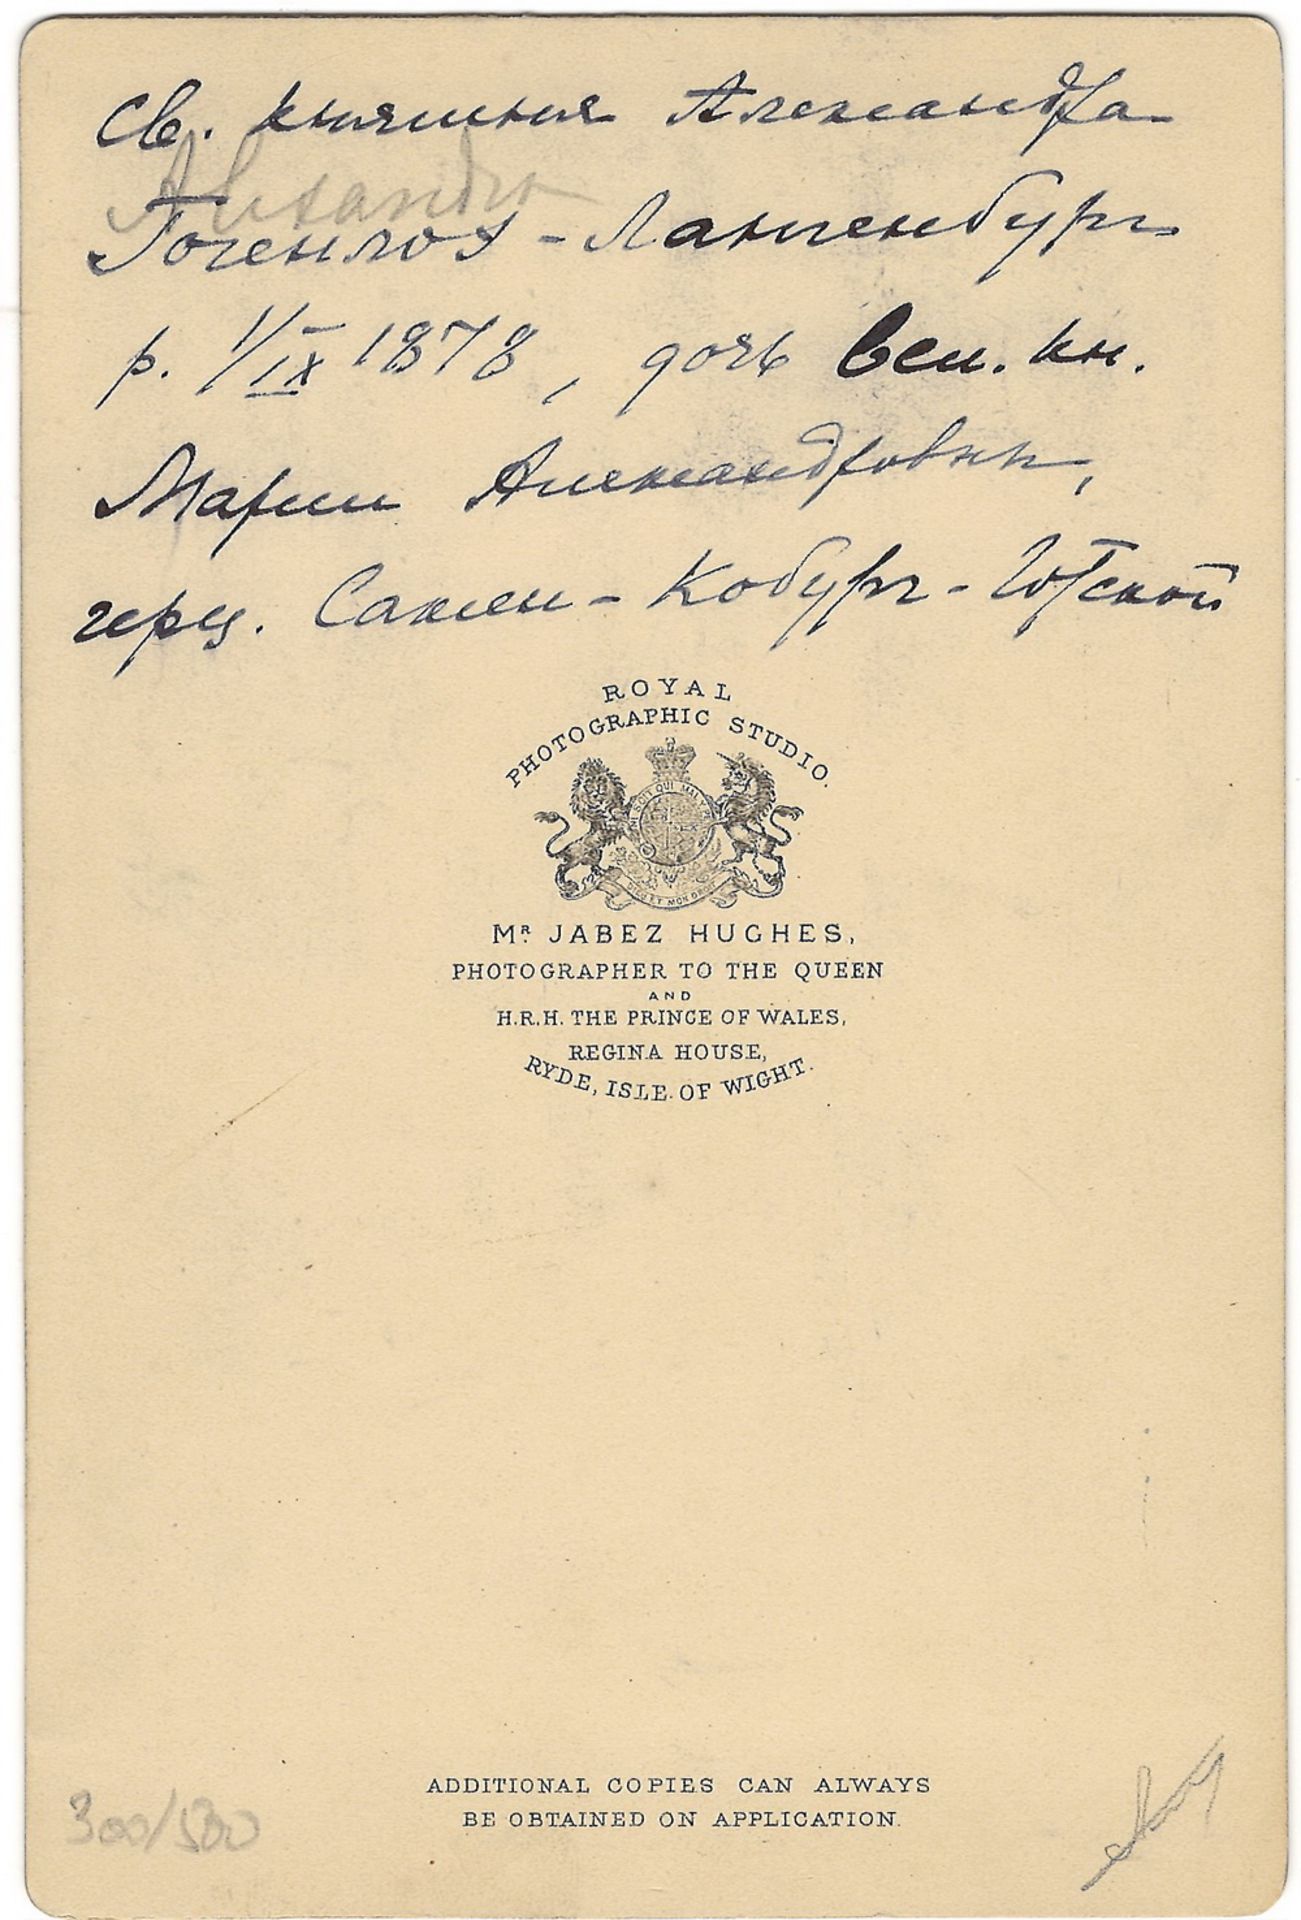 Св. княгиня Александра
Alexandra
Гогенлоэ - Лангенбург
р. 1/IX 1878, дочь вел. кн.
Марии Александровны,
герц. Саксен - Кобург - Готской
ROYAL
PHOTOGRAPHIC STUDIO.
DIEU ET MON DROIT
MR. JABEZ HUGHES,
PHOTOGRAPHER TO THE QUEEN
AND
H.R.H. THE PRINCE OF WALES,
REGINA HOUSE,
RYDE, ISLE OF WIGHT.
300/500
ADDITIONAL COPIES CAN ALWAYS
BE OBTAINED ON APPLICATION.